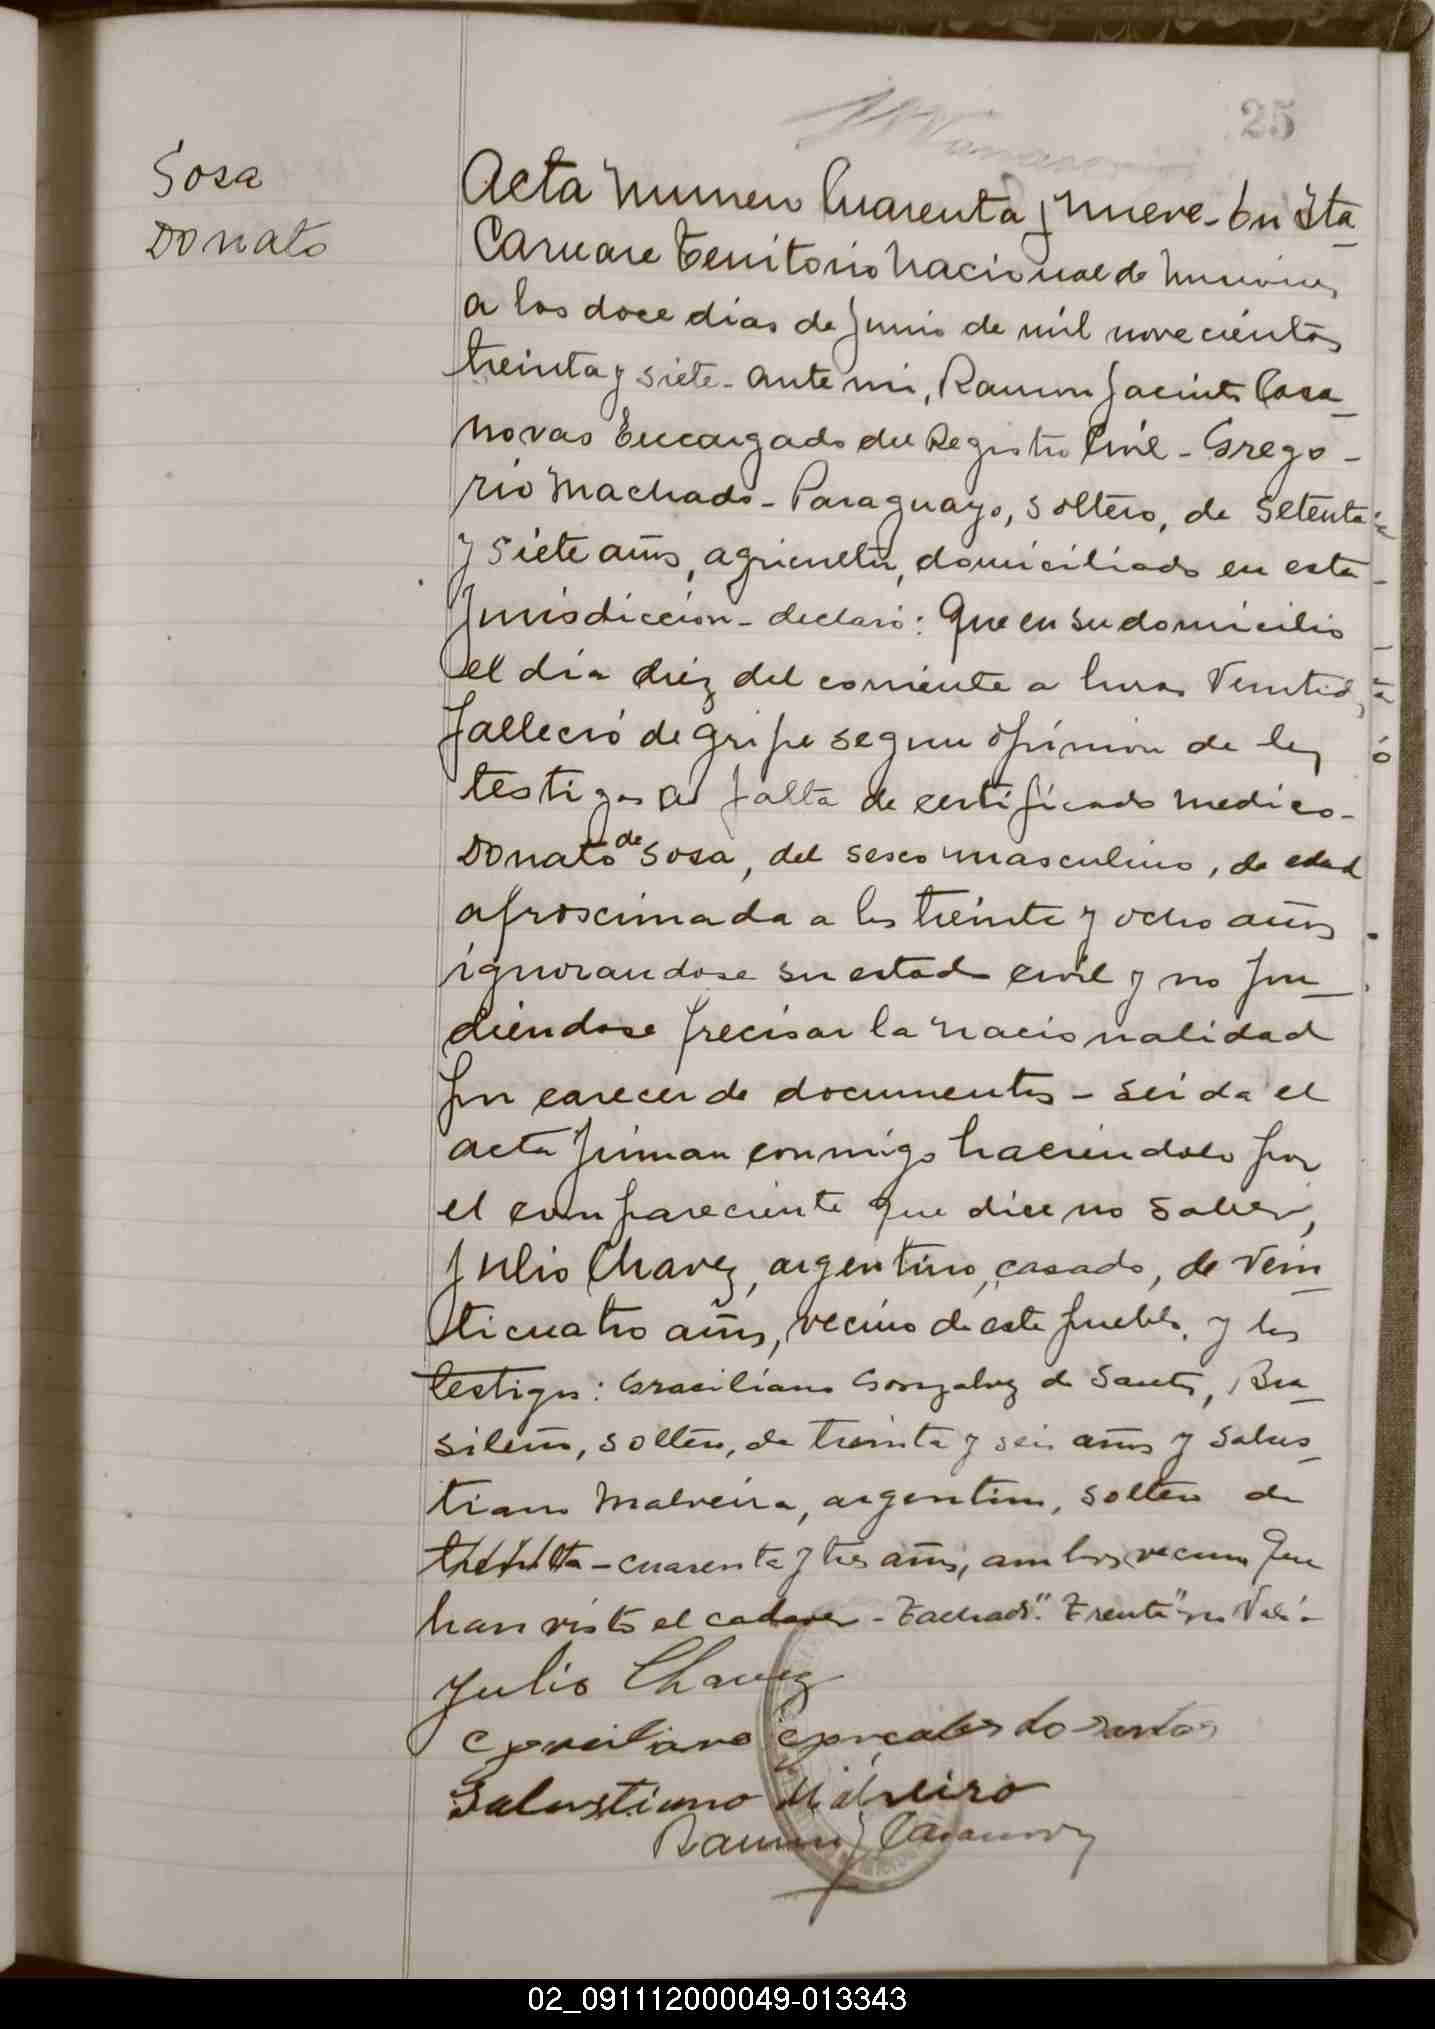 25
Sosa
Donato
Acta Numero Cuarenta y nueve - En Ita
Caruare Territorio Nacional de Misiones
a los doce dias de Junio de mil novecientos
treinta y siete - ante mi, Ramon Jacinto Casa_
novas Encargado del Registro Civil - Grego -
rio Machado - Paraguayo, soltero, de setenta
y siete años, agricultor, domiciliado en esta
Jurisdiccion - declaró: Que en su domicilio
el dia diez del corriente a horas
falleció de gripe segun opinion de los
testigos a falta de certificado medico -
Donato de Sosa, del sexo masculino, de edad
aproscimada a los treinta y ocho años
ignorandose su estado civil y no pu_
diendose precisar la nacionalidad
por carecer de documentos - Leida el
acta firman conmigo haciendolo por
el compareciente que dice no saber,
Julio Chavez, argentino, casado, de vein_
ticuatro años, vecino de este pueblo, y los
testigos: Graciliano Gonzalvez do Santos, Bra_
sileño, soltero, de treinta y seis años y Salus_
tiano Malveira, argentino, soltero de
treinta - cuarenta y tres años, ambos vecinos que
han visto el cadaver - Tachado: "Treinta" no vale -
Julio Chavez
Graciliano Goncalves do Santos
Salustiano
Ramon J Casanovas
02_091112000049-013343